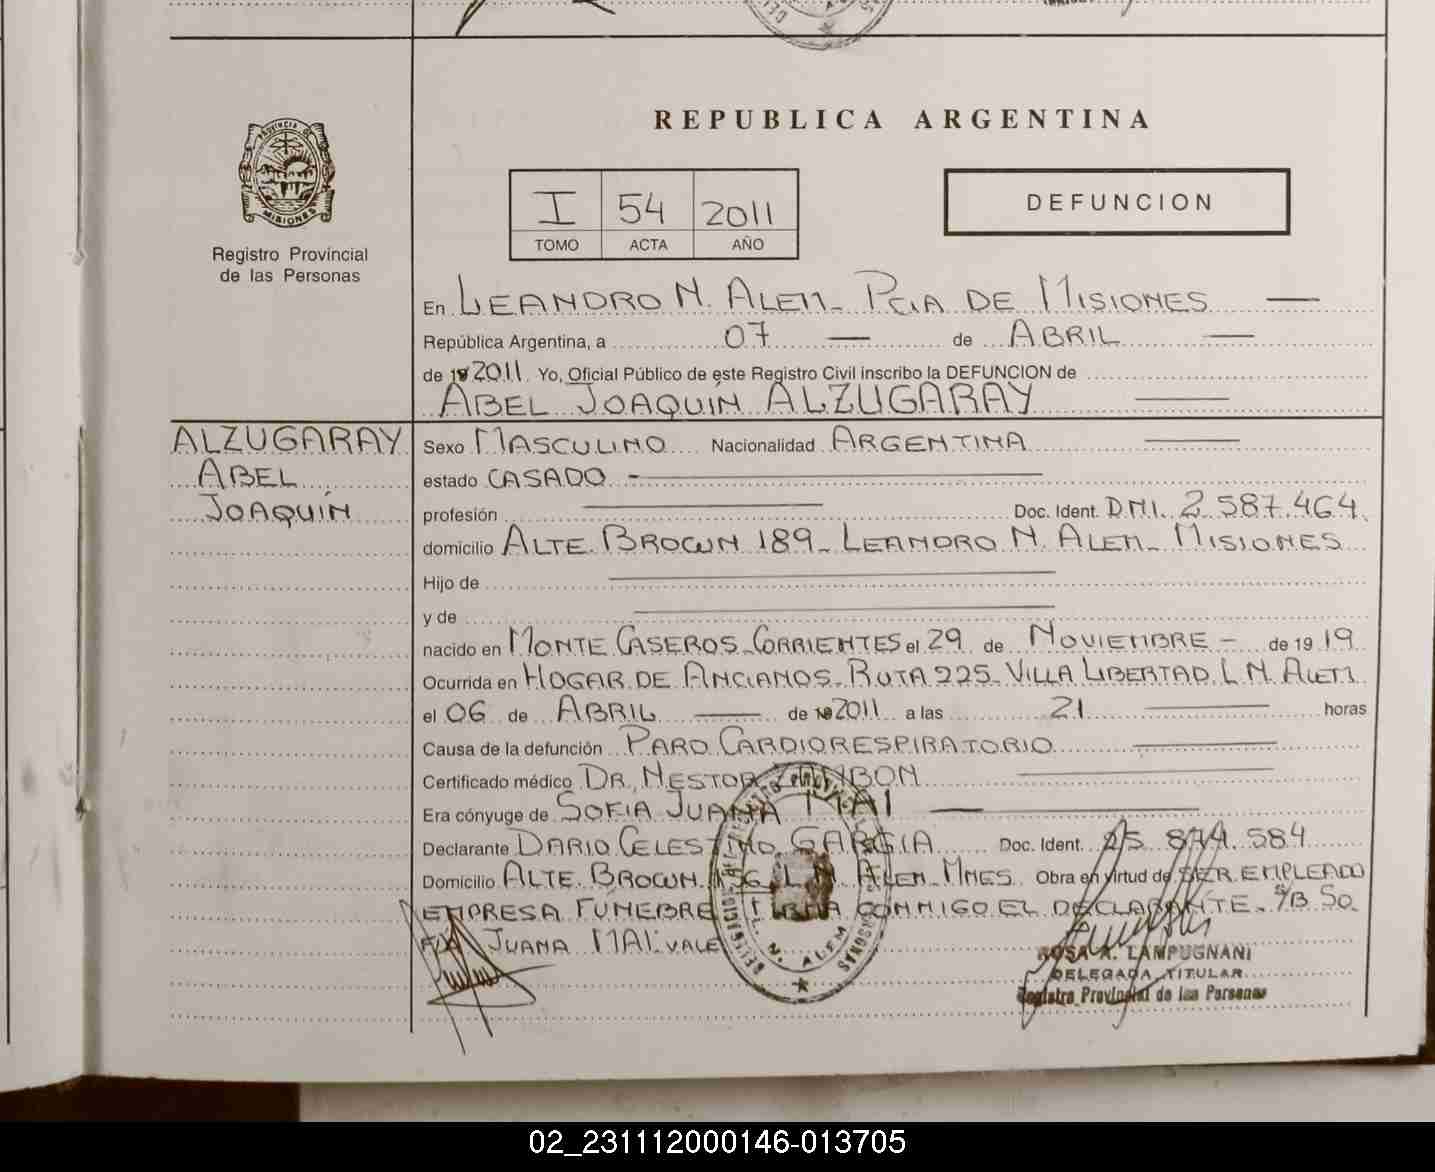 REPUBLICA ARGENTINA
PROVINCIA DE
MISIONES
Registro Provincial
de las Personas
I 54 2011
TOMO ACTA AÑO
DEFUNCION
En LEANDRO N. ALEM - PCIA DE MISIONES
República Argentina, a 07 de ABRIL
de 19 2011 Yo, Oficial Público de este Registro Civil inscribo la DEFUNCION de
ABEL JOAQUÍN ALZUGARAY
ALZUGARAY
ABEL
JOAQUÍN
Sexo MASCULINO Nacionalidad ARGENTINA
estado CASADO
profesión Doc. Ident. DNI. 2.587.464
domicilio ALTE. BROWN 189 - LEANDRO N. ALEM - MISIONES
Hijo de
y de
nacido en MONTE CASEROS - CORRIENTES el 29 de NOVIEMBRE - de 19 19
Ocurrida en HOGAR DE ANCIANOS - RUTA 225 - VILLA LIBERTAD. L. N. ALEM
el 06 de ABRIL de 2011 a las 21 horas
Causa de la defunción PARO CARDIORESPIRATORIO
Certificado médico DR. NESTOR ZAMBON
Era cónyuge de SOFIA JUANA MAI
Declarante DARIO CELESTINO GARCIA Doc. Ident. 25.874.584
Domicilio ALTE. BROWN L. N. ALEM - MNES. Obra en virtud de SER EMPLEADO
EMPRESA FUNEBRE FIRMA CONMIGO EL DECLARANTE. S/B SO
FIA JUANA MAI: VALE
L. N. ALEM
ROSA A. LAMPUGNANI
DELEGADA TITULAR
Registro Provincial de las Personas
02_231112000146-013705